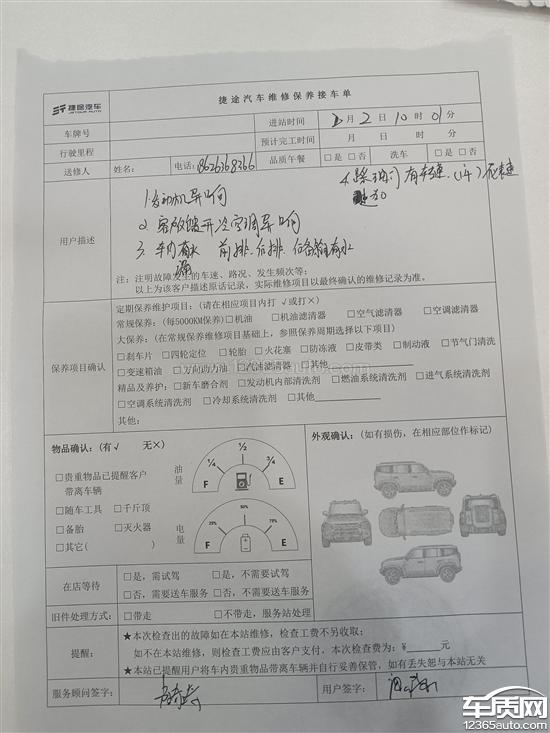 捷途汽车
JETOUR AUTO
捷途汽车维修保养接车单
车牌号
进站时间 2月2日10时01分
行驶里程
预计完工时间 月 日 时 分
送修人 姓名: 电话:
品质午餐 □是 □否 洗车 □是 □否
用户描述
1.发动机异响
2. 开冷空调异响
3. 车内漏水 前排.后排. 有水
4. 有
注:注明故障发生的车速、路况、发生频次等;
以上为该客户描述原话记录,实际维修项目以最终确认的维修记录为准。
保养项目确认
定期保养维护项目:(请在相应项目内打 √或打×)
常规保养:(每5000KM保养)□机油 □机油滤清器 □空气滤清器 □空调滤清器
大保养:(在常规保养项目基础上,参照保养周期选择以下项目)
□刹车片 □四轮定位 □轮胎 □火花塞 □防冻液 □皮带类 □制动液 □节气门清洗
□变速箱油 □方向助力油 □汽油滤清器 □其他
精品及养护:□新车磨合剂 □发动机内部清洗剂 □燃油系统清洗剂 □进气系统清洗剂
□空调系统清洗剂 □冷却系统清洗剂 □其他
其他:
物品确认:(有√ 无×)
□贵重物品已提醒客户
带离车辆
□随车工具 □千斤顶
□备胎 □灭火器
□其它( )
油量
1/4 1/2 3/4
F E
电量
25% 50% 75%
F E
外观确认:(如有损伤,在相应部位作标记)
在店等待
□是,需试驾 □是,不需要试驾
□否,需要送车服务 □否,不需要送车服务
旧件处理方式: □带走 □不带走,服务站处理
提醒:
★本次检查出的故障如在本站维修,检查工费不另收取;
如不在本站维修,则检查工费应由客户支付,本次检查费为:¥ 元
★本站已提醒用户将车内贵重物品带离车辆并自行妥善保管,如有丢失恕与本站无关
服务顾问签字:
用户签字:
车质网
12365auto.com